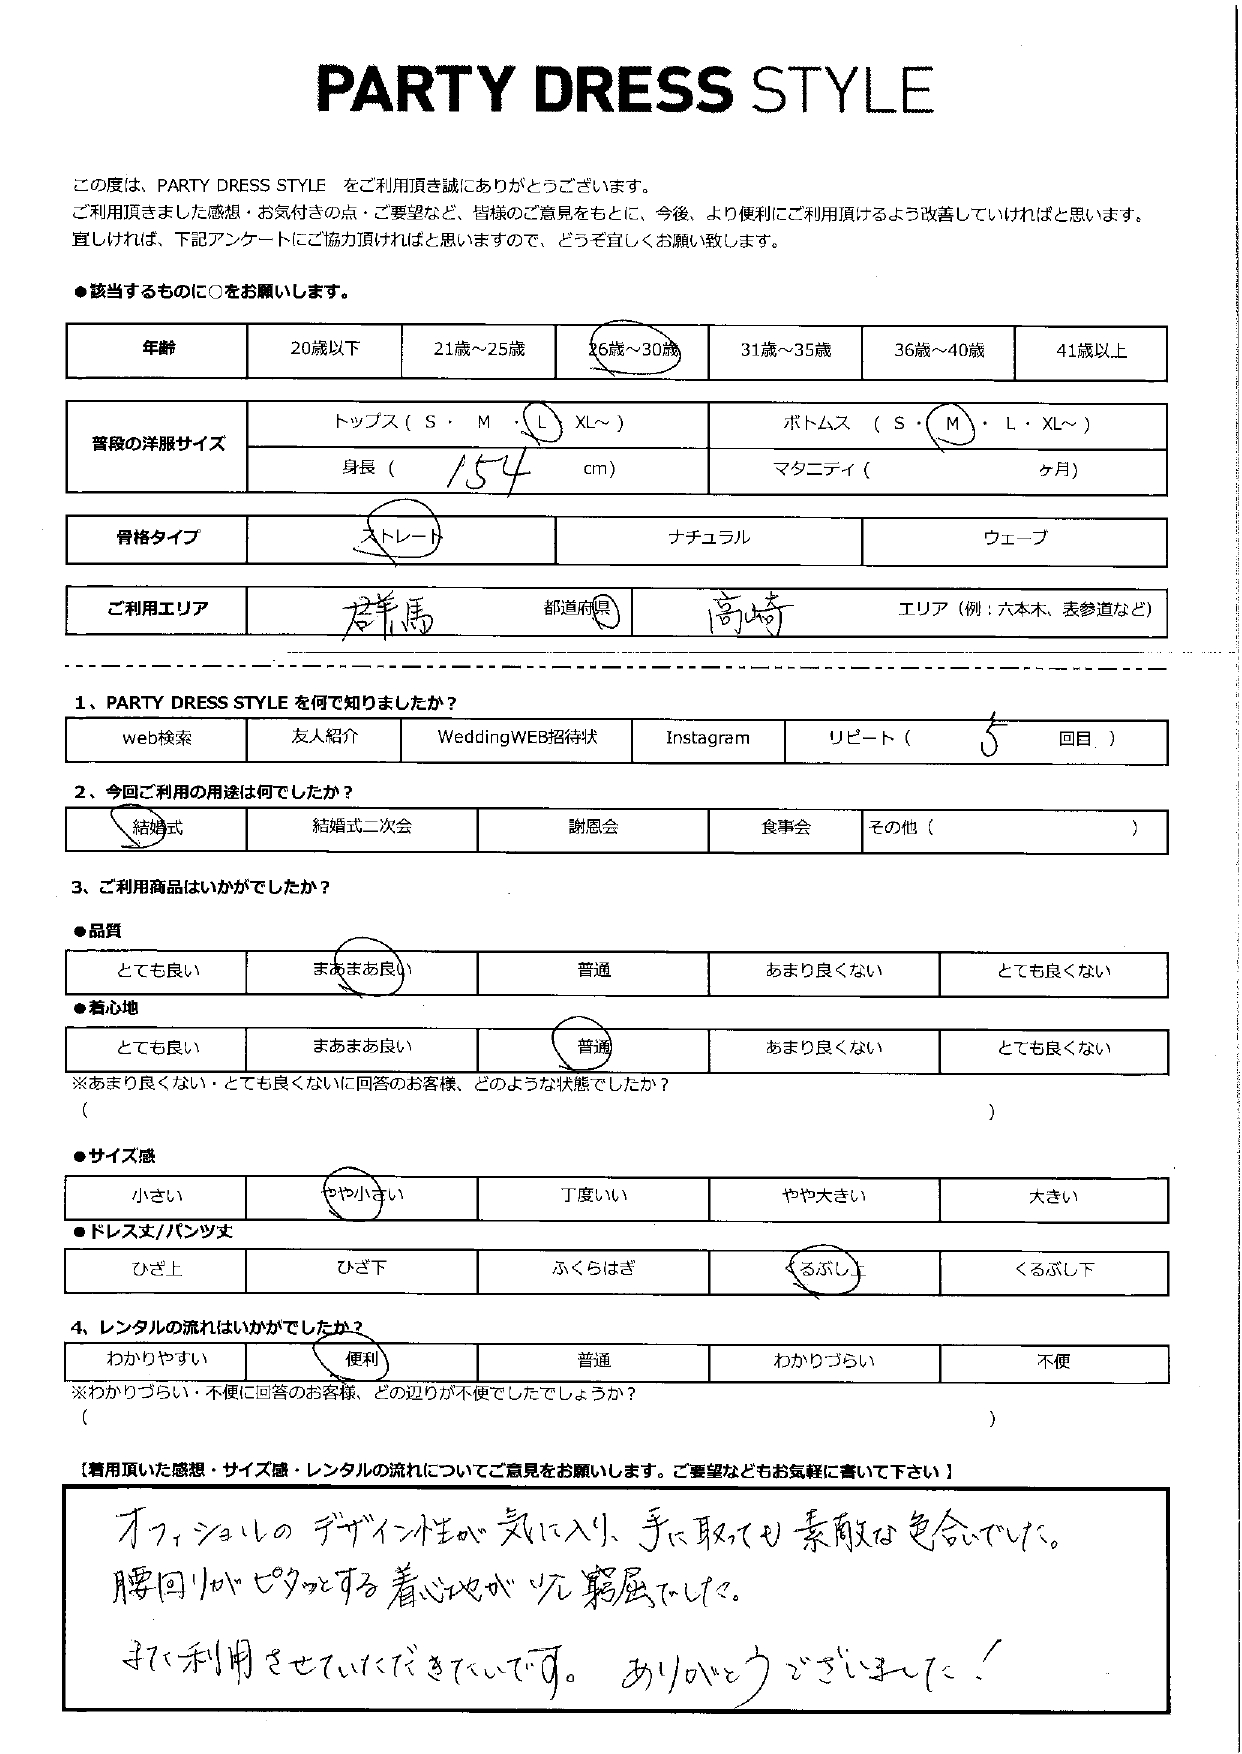 PARTY DRESS STYLE
この度は、PARTY DRESS STYLE をご利用頂き誠にありがとうございます。
ご利用頂きました感想・お気付きの点・ご要望など、皆様のご意見をもとに、今後、より便利にご利用頂けるよう改善していければと思います。
宜しければ、下記アンケートにご協力頂ければと思いますので、どうぞ宜しくお願い致します。
●該当するものに○をお願いします。
年齢 20歳以下 21歳～25歳 26歳～30歳 31歳～35歳 36歳～40歳 41歳以上
普段の洋服サイズ トップス ( S ・ M ・ L XL～ ) ボトムス ( S ・ M ・ L ・ XL～ )
身長 ( 154 cm) マタニティ ( ヶ月)
骨格タイプ ストレート ナチュラル ウェーブ
ご利用エリア 群馬 都道府県 高崎 エリア（例：六本木、表参道など）
1、PARTY DRESS STYLE を何で知りましたか？
web検索 友人紹介 WeddingWEB招待状 Instagram リピート ( 5 回目 )
2、今回ご利用の用途は何でしたか？
結婚式 結婚式二次会 謝恩会 食事会 その他 ( )
3、ご利用商品はいかがでしたか？
●品質
とても良い まあまあ良い 普通 あまり良くない とても良くない
●着心地
とても良い まあまあ良い 普通 あまり良くない とても良くない
※あまり良くない・とても良くないに回答のお客様、どのような状態でしたか？
( )
●サイズ感
小さい やや小さい 丁度いい やや大きい 大きい
●ドレス丈/パンツ丈
ひざ上 ひざ下 ふくらはぎ くるぶし上 くるぶし下
4、レンタルの流れはいかがでしたか？
わかりやすい 便利 普通 わかりづらい 不便
※わかりづらい・不便に回答のお客様、どの辺りが不便でしたでしょうか？
( )
【着用頂いた感想・サイズ感・レンタルの流れについてご意見をお願いします。ご要望などもお気軽に書いて下さい】
オフィショルの デザイン性が 気に入り、手に取っても 素敵な色合いでした。
腰回りが ピタッとする 着心地が 少し 窮屈でした。
また利用させていただきたいです。 ありがとうございました！